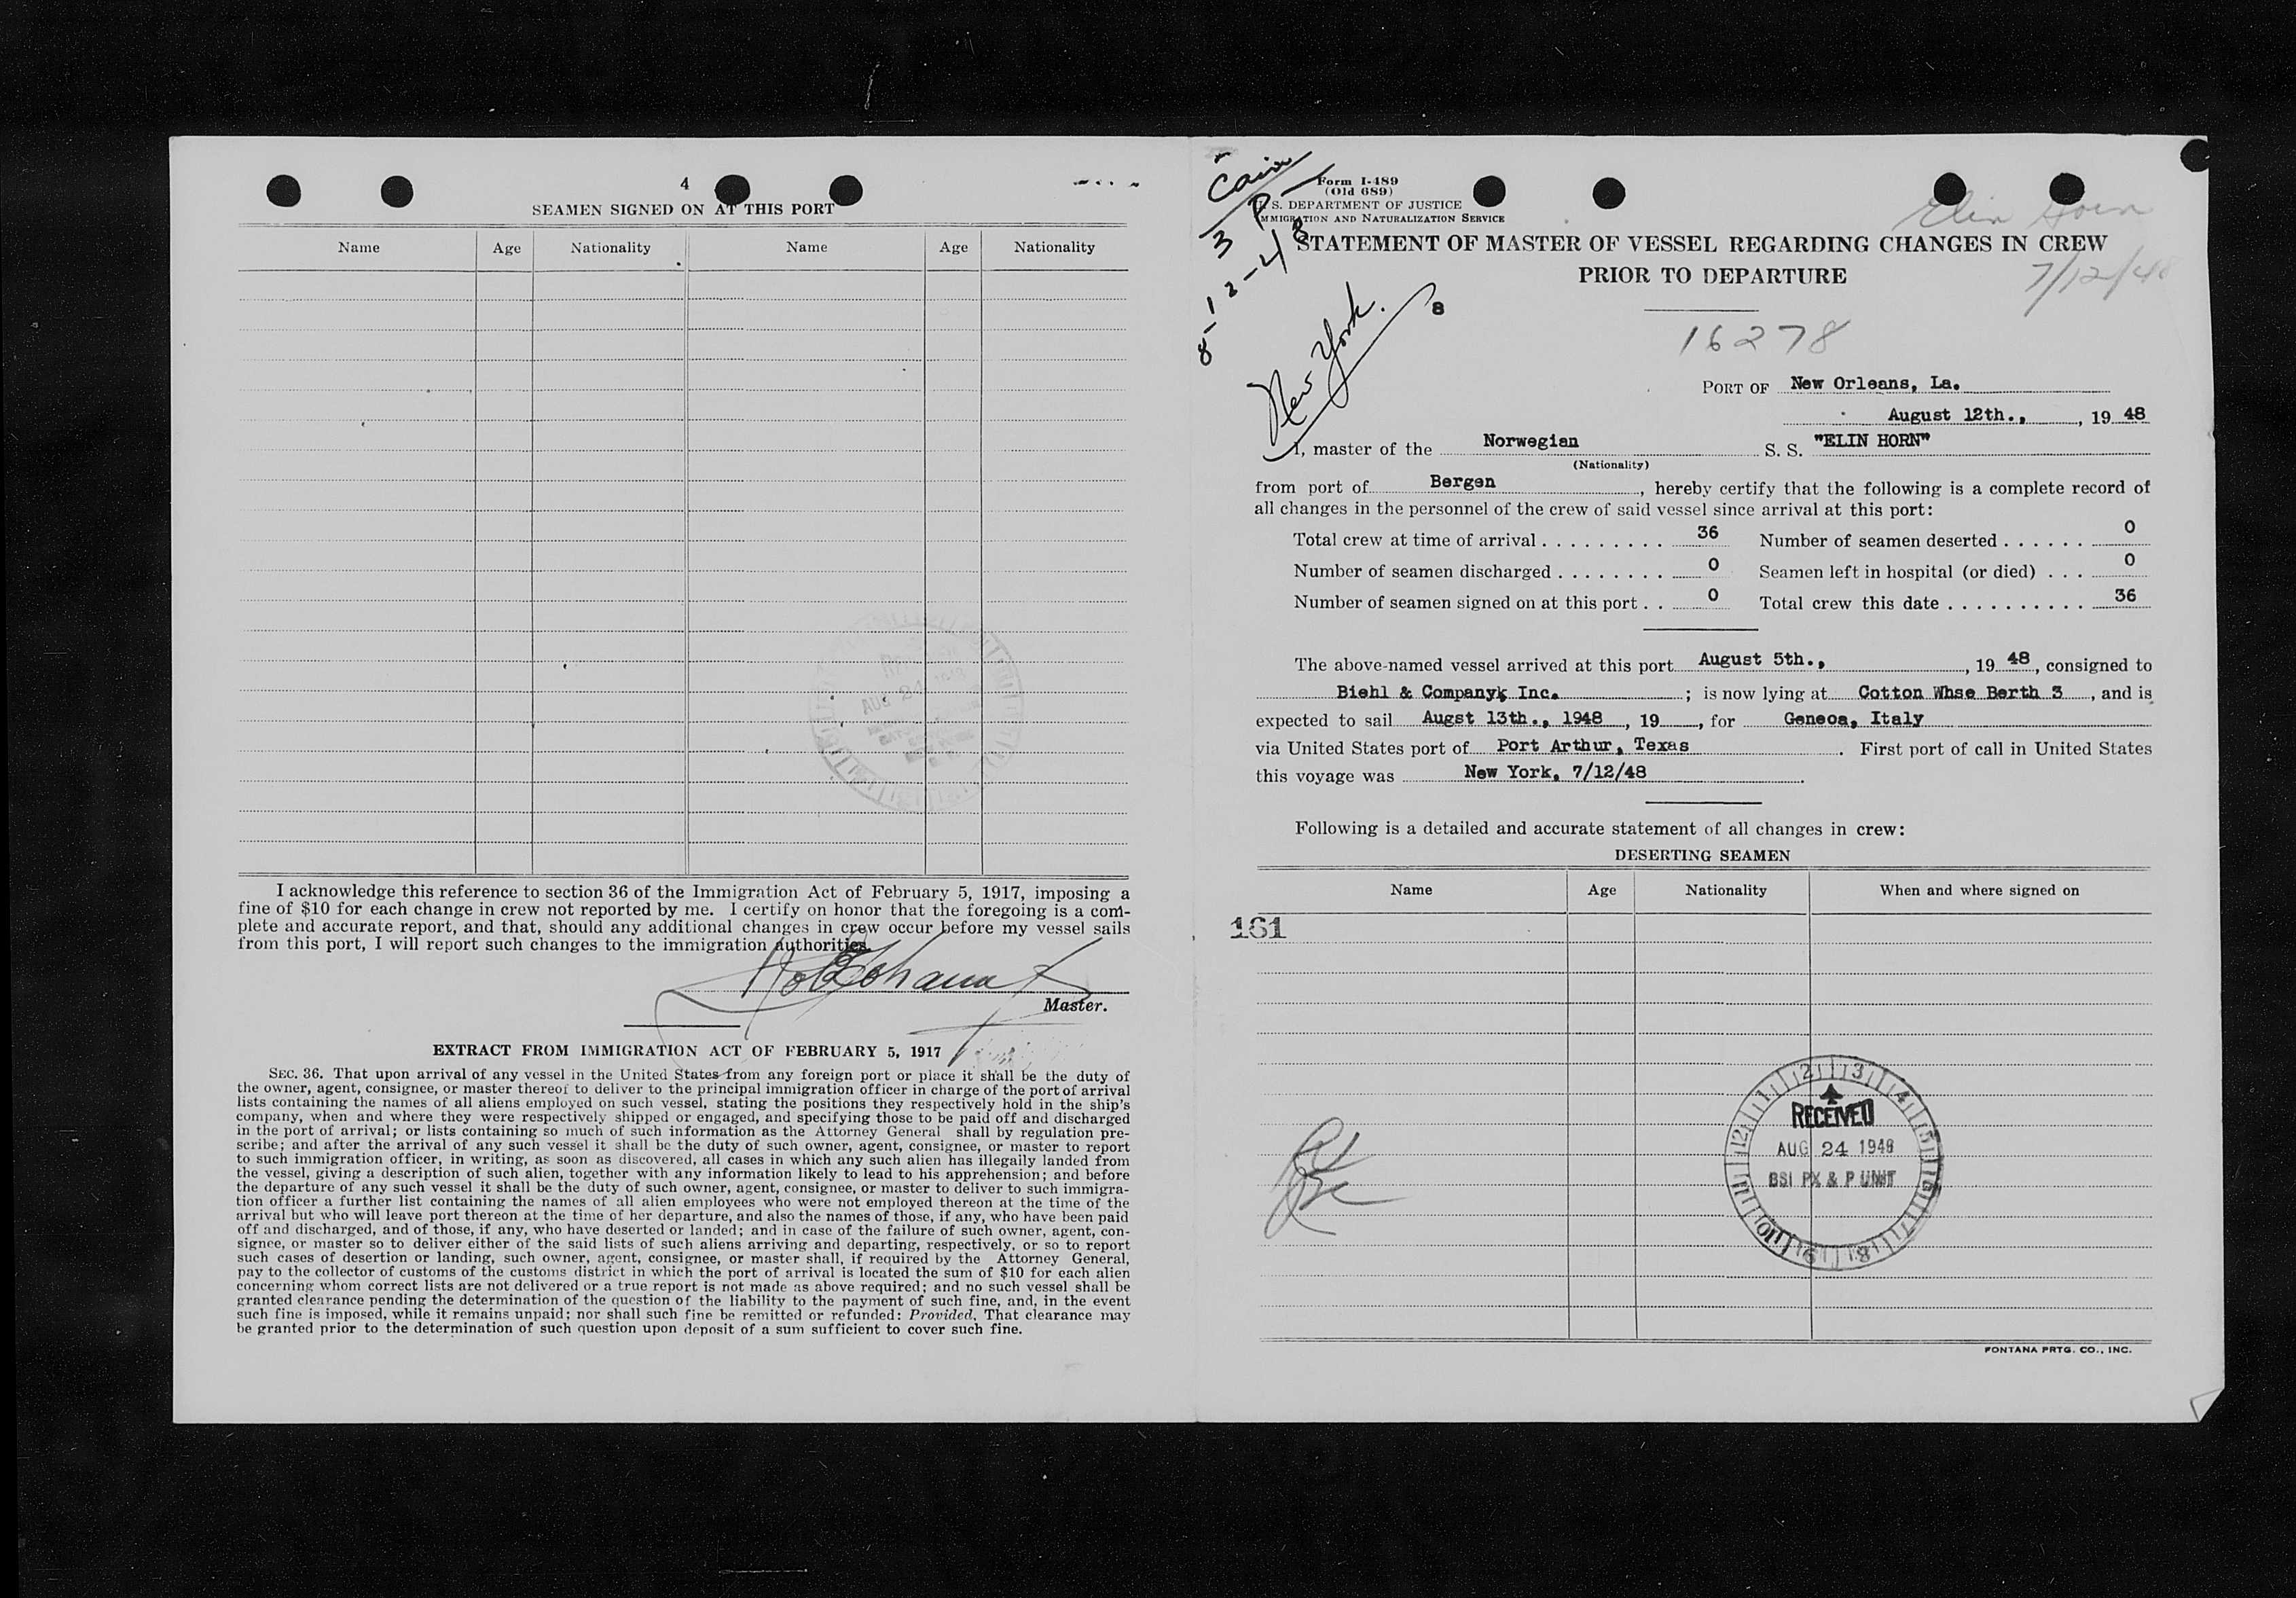 4
SEAMEN SIGNED ON AT THIS PORT
Name Age Nationality Name Age Nationality
I acknowledge this reference to section 36 of the Immigration Act of February 5, 1917, imposing a
fine of $10 for each change in crew not reported by me. I certify on honor that the foregoing is a com-
plete and accurate report, and that, should any additional changes in crew occur before my vessel sails
from this port, I will report such changes to the immigration authorities.
Master.
EXTRACT FROM IMMIGRATION ACT OF FEBRUARY 5, 1917
SEC. 36. That upon arrival of any vessel in the United States from any foreign port or place it shall be the duty of
the owner, agent, consignee, or master thereof to deliver to the principal immigration officer in charge of the port of arrival
lists containing the names of all aliens employed on such vessel, stating the positions they respectively hold in the ship's
company, when and where they were respectively shipped or engaged, and specifying those to be paid off and discharged
in the port of arrival; or lists containing so much of such information as the Attorney General shall by regulation pre-
scribe; and after the arrival of any such vessel it shall be the duty of such owner, agent, consignee, or master to report
to such immigration officer, in writing, as soon as discovered, all cases in which any such alien has illegally landed from
the vessel, giving a description of such alien, together with any information likely to lead to his apprehension; and before
the departure of any such vessel it shall be the duty of such owner, agent, consignee, or master to deliver to such immigra-
tion officer a further list containing the names of all alien employees who were not employed thereon at the time of the
arrival but who will leave port thereon at the time of her departure, and also the names of those, if any, who have been paid
off and discharged, and of those, if any, who have deserted or landed; and in case of the failure of such owner, agent, con-
signee, or master so to deliver either of the said lists of such aliens arriving and departing, respectively, or so to report
such cases of desertion or landing, such owner, agent, consignee, or master shall, if required by the Attorney General,
pay to the collector of customs of the customs district in which the port of arrival is located the sum of $10 for each alien
concerning whom correct lists are not delivered or a true report is not made as above required; and no such vessel shall be
granted clearance pending the determination of the question of the liability to the payment of such fine, and, in the event
such fine is imposed, while it remains unpaid; nor shall such fine be remitted or refunded: Provided, That clearance may
be granted prior to the determination of such question upon deposit of a sum sufficient to cover such fine.
3 P
8-12-48
New York.
8
Form I-489
(Old 689)
U. S. DEPARTMENT OF JUSTICE
IMMIGRATION AND NATURALIZATION SERVICE
Elin Horn
7/12/48
STATEMENT OF MASTER OF VESSEL REGARDING CHANGES IN CREW
PRIOR TO DEPARTURE
16278
PORT OF New Orleans, La.
August 12th., , 19 48
I, master of the Norwegian S. S. "ELIN HORN"
(Nationality)
from port of Bergen , hereby certify that the following is a complete record of
all changes in the personnel of the crew of said vessel since arrival at this port:
Total crew at time of arrival . . . . . . . . . 36 Number of seamen deserted . . . . . . 0
Number of seamen discharged . . . . . . . . 0 Seamen left in hospital (or died) . . . 0
Number of seamen signed on at this port . . 0 Total crew this date . . . . . . . . . . 36
The above-named vessel arrived at this port August 5th., , 19 48, consigned to
Biehl & Companyk Inc. ; is now lying at Cotton Whse Berth 3 , and is
expected to sail Augst 13th., 1948 , 19 , for Geneoa, Italy
via United States port of Port Arthur, Texas . First port of call in United States
this voyage was New York, 7/12/48 .
Following is a detailed and accurate statement of all changes in crew:
DESERTING SEAMEN
Name Age Nationality When and where signed on
161
RECEIVED
AUG 24 1948
BSI PX & P UNIT
FONTANA PRTG. CO., INC.